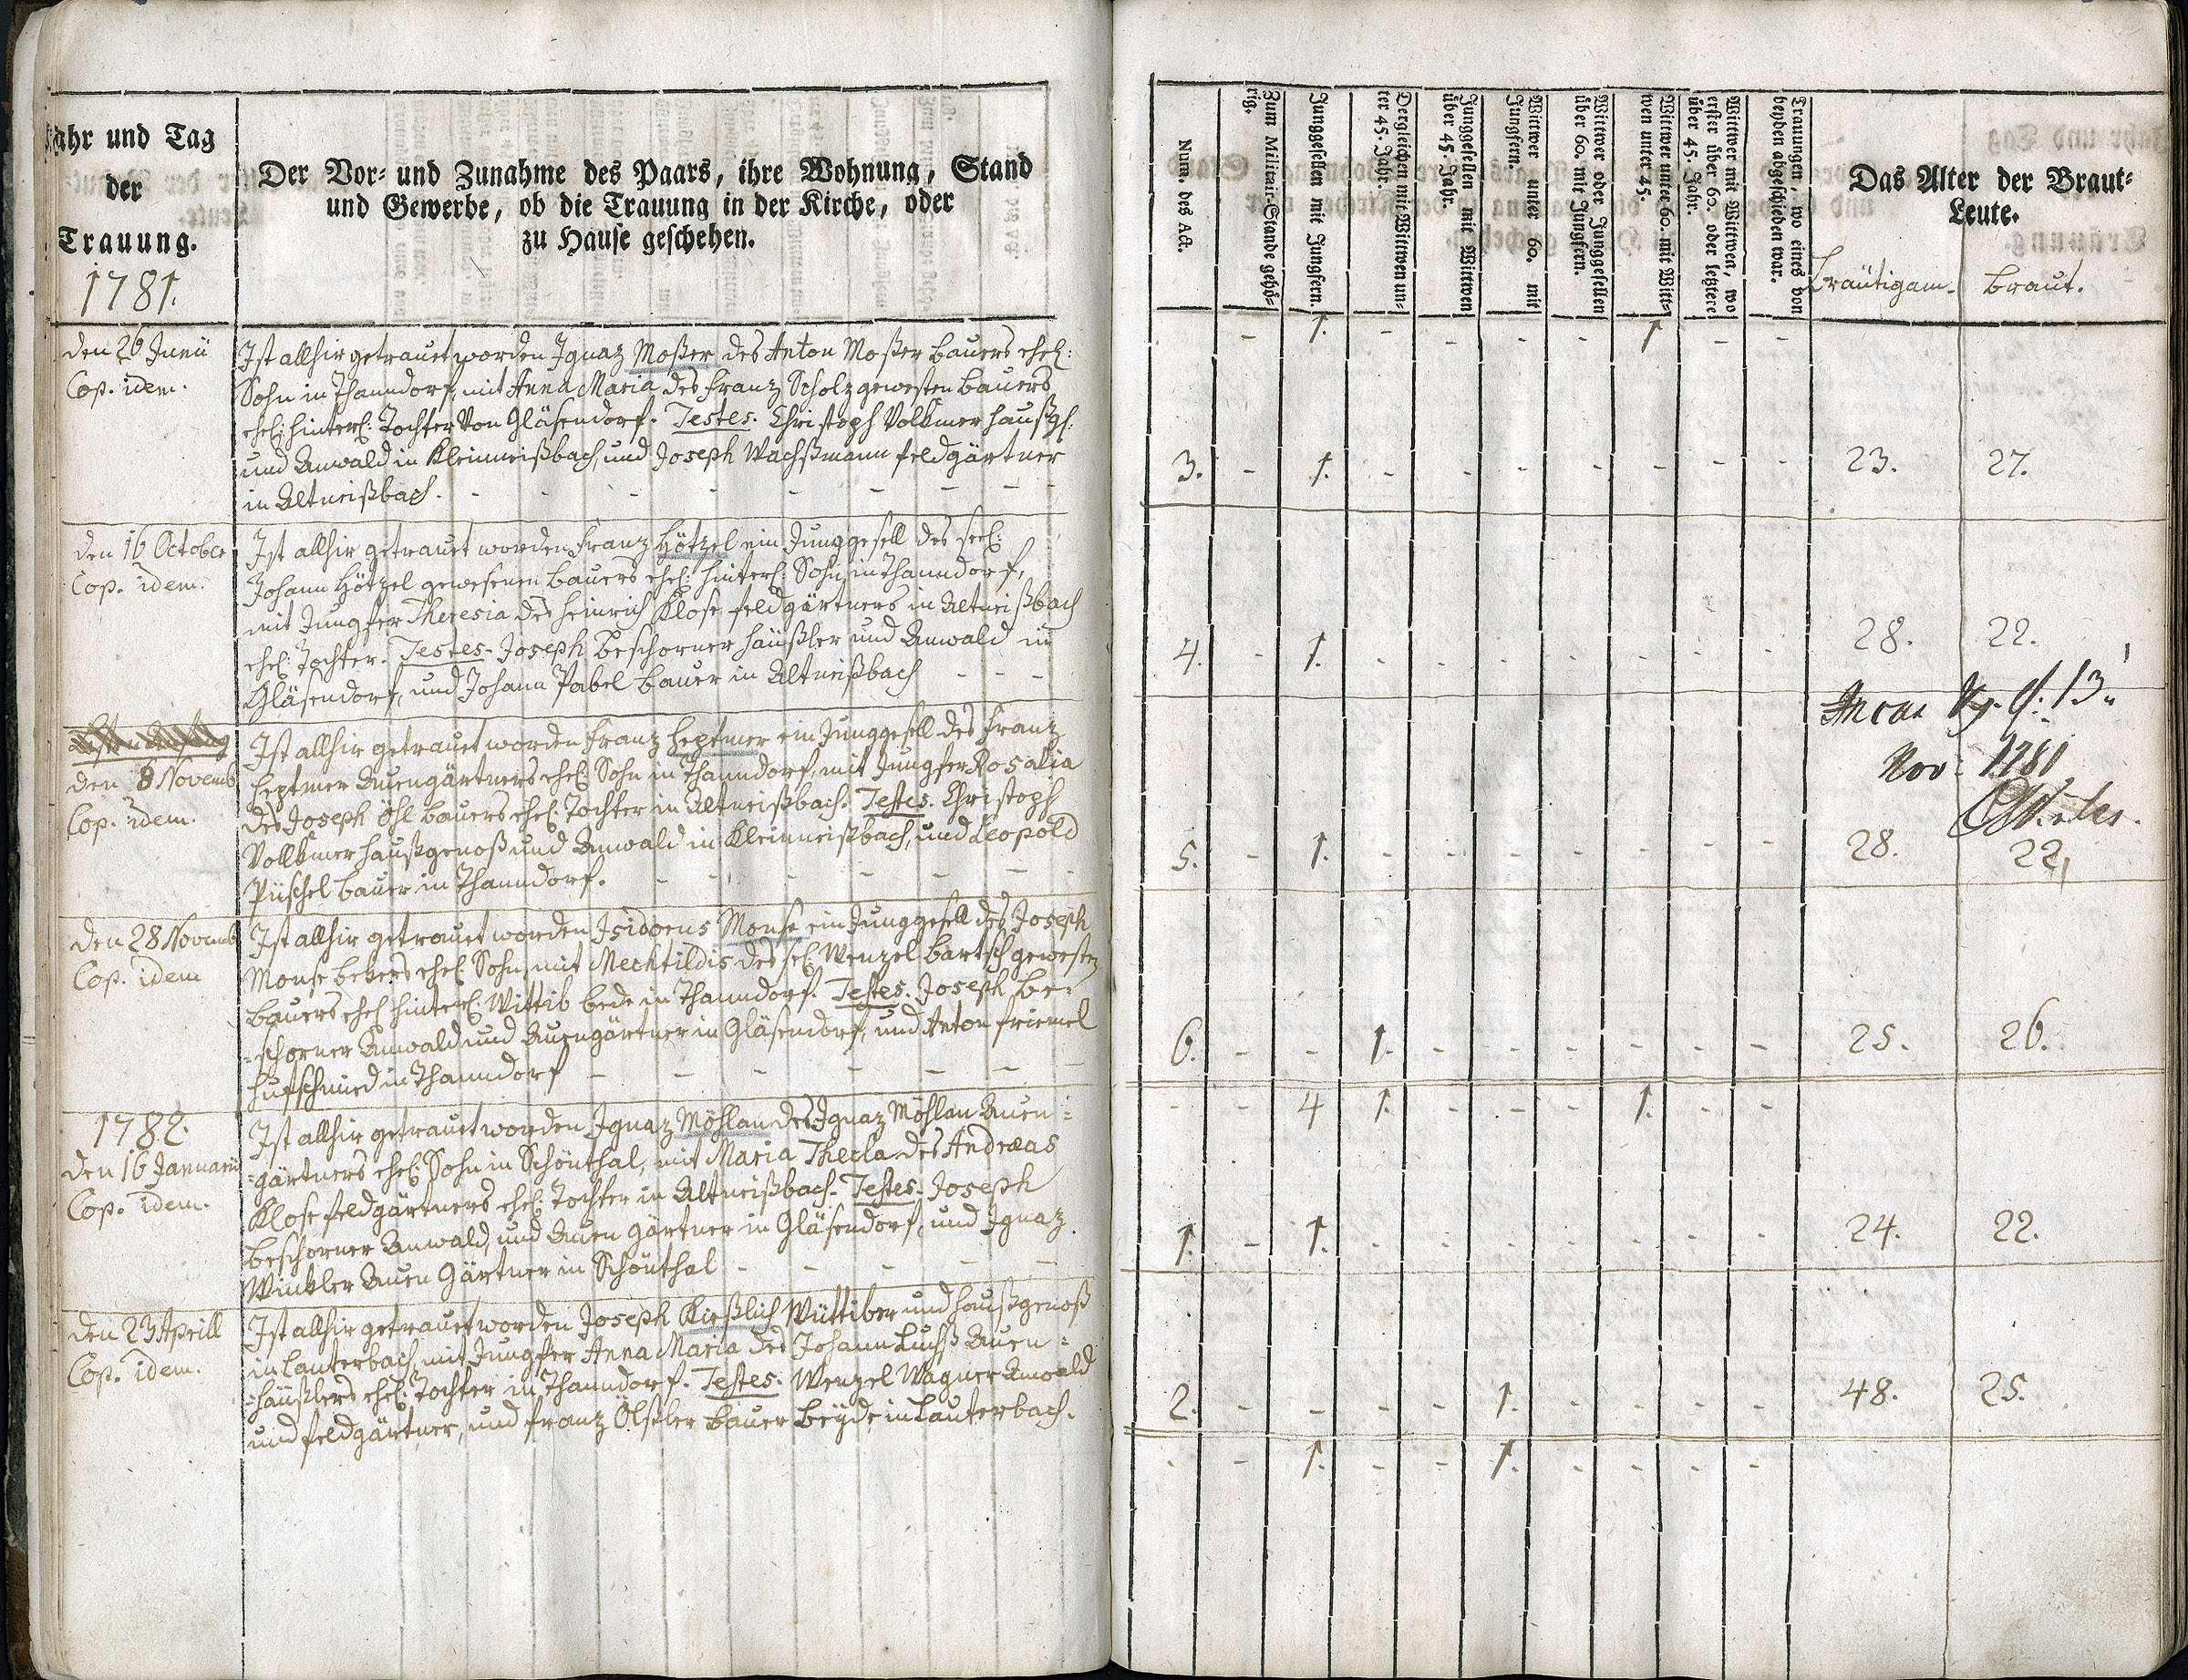 Jahr und Tag
der
Trauung.
1781.
Der Vor- und Zunahme des Paars, ihre Wohnung, Stand
und Gewerbe, ob die Trauung in der Kirche, oder
zu Hause geschehen.
den 26 Junii
Cop. idem.
Ist allhir getrauet worden Ignaz Moßer des Anton Moßer Bauers ehel:
Sohn in Thanndorf, mit Anna Maria des Franz Scholz gewesten Bauers
ehel: hinterl: Tochter Von Gläsendorf. Testes. Christoph Volkmer Haußg:
und Anwald in Kleinneißbach, und Joseph Wachßmann feldgärtner
in Altneißbach. - - - - - - - -
den 16 October
Cop. idem.
Ist allhir getrauet worden Franz Hötzel ein Junggesell des seel:
Johann Hötzel gewesenen Bauers ehel: hinterl: Sohn, in Thanndorf,
mit Jungfer Theresia des Heinrich Klose feldgärtners in Altneißbach
ehel: Tochter. Testes. Joseph Beschorner Häußler und Anwald in
Gläsendorf, und Johann Pabel Bauer in Altneißbach - - -
den 8 Novemb
Cop. idem.
Ist allhir getrauet worden Franz Heptner ein Junggesell des Franz
Heptner Auengärtners ehel: Sohn in Thanndorf, mit Jungfer Rosalia
des Joseph Öhl Bauers ehel: Tochter in Altneißbach. Testes. Christoph
Vollkmer Haußgenoß und Anwald in Kleinneißbach, und Leopold
Püschel Bauer in Thanndorf. - - - - - -
den 28 Novemb
Cop. idem
Ist allhir getrauet worden Isidorus Monse ein Junggesell des Joseph
Monse bekers ehel: Sohn, mit Mechtildis des sel: Wenzel Bartsch gewesten
Bauers ehel hinterl: Wittib bede in Thanndorf. Testes. Joseph Be-
-schorner Anwald und Auengärtner in Gläsendorf, und Anton Friemel
Hufschmied in Thanndorf - - - - - - -
1782.
den 16 Januarii
Cop. idem.
Ist allhir getrauet worden Ignaz Möhlan des Ignaz Möhlan Auen=
=gärtners ehel: Sohn in Schönthal, mit Maria Thecla des Andreas
Klose feldgärtners ehel: Tochter in Altneißbach. Testes. Joseph
Beschorner Anwald, und Auen gärtner in Gläsendorf, und Ignaz
Winkler Auen Gärtner in Schönthal - - - - -
den 23 Aprill
Cop. idem.
Ist allhir getrauet worden Joseph Kießlich Wüttiber und Haußgenoß
in Lauterbach, mit Jungfer Anna Maria des Johann Luchß Auen=
=häußlers ehel: Tochter in Thanndorf. Testes. Wenzel Wagner Anwald
und feldgärtner, und Franz Ölßler Bauer Beÿde in Lauterbach.
Num. des Act.
Zum Militair-Stande gehö-
rig.
Junggesellen mit Jungfern.
Dergleichen mit Wittwen un-
ter 45. Jahr.
Junggesellen mit Wittwen
über 45. Jahr.
Wittwer unter 60. mit
Jungfern.
Wittwer oder Junggesellen
über 60. mit Jungfern.
Wittwer unter 60. mit Witt-
wen unter 45.
Wittwer mit Wittwen, wo
erster über 60. oder letztere
über 45. Jahr.
Trauungen, wo eines von
beyden abgeschieden war.
Das Alter der Braut-
Leute.
Bräutigam. Braut.
- 1. - - - - 1 - -
3. - 1. - - - - - - - 23. 27.
4. - 1. - - - - - - - 28. 22.
13
Nov: 1781
5. - 1. - - - - - - - 28. 22
6. - - 1. - - - - - - 25. 26.
- - 4 1. - - - 1. - -
1. - 1. - - - - - - - 24. 22.
2. - - - - 1. - - - - 48. 25.
- - 1. - - 1. - - - -